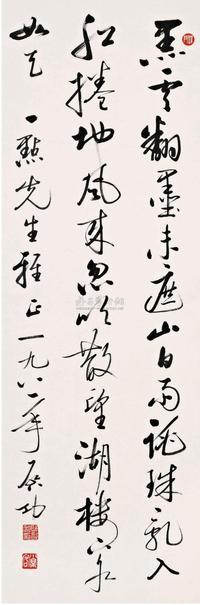 黑云翻墨未遮山白雨跳珠乱入
船捲地风来忽吹散望湖楼下水
如天 一點先生雅正一九八二年 启功